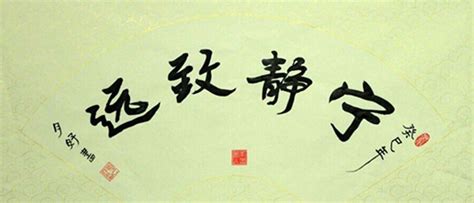 癸巳年
宁静致远